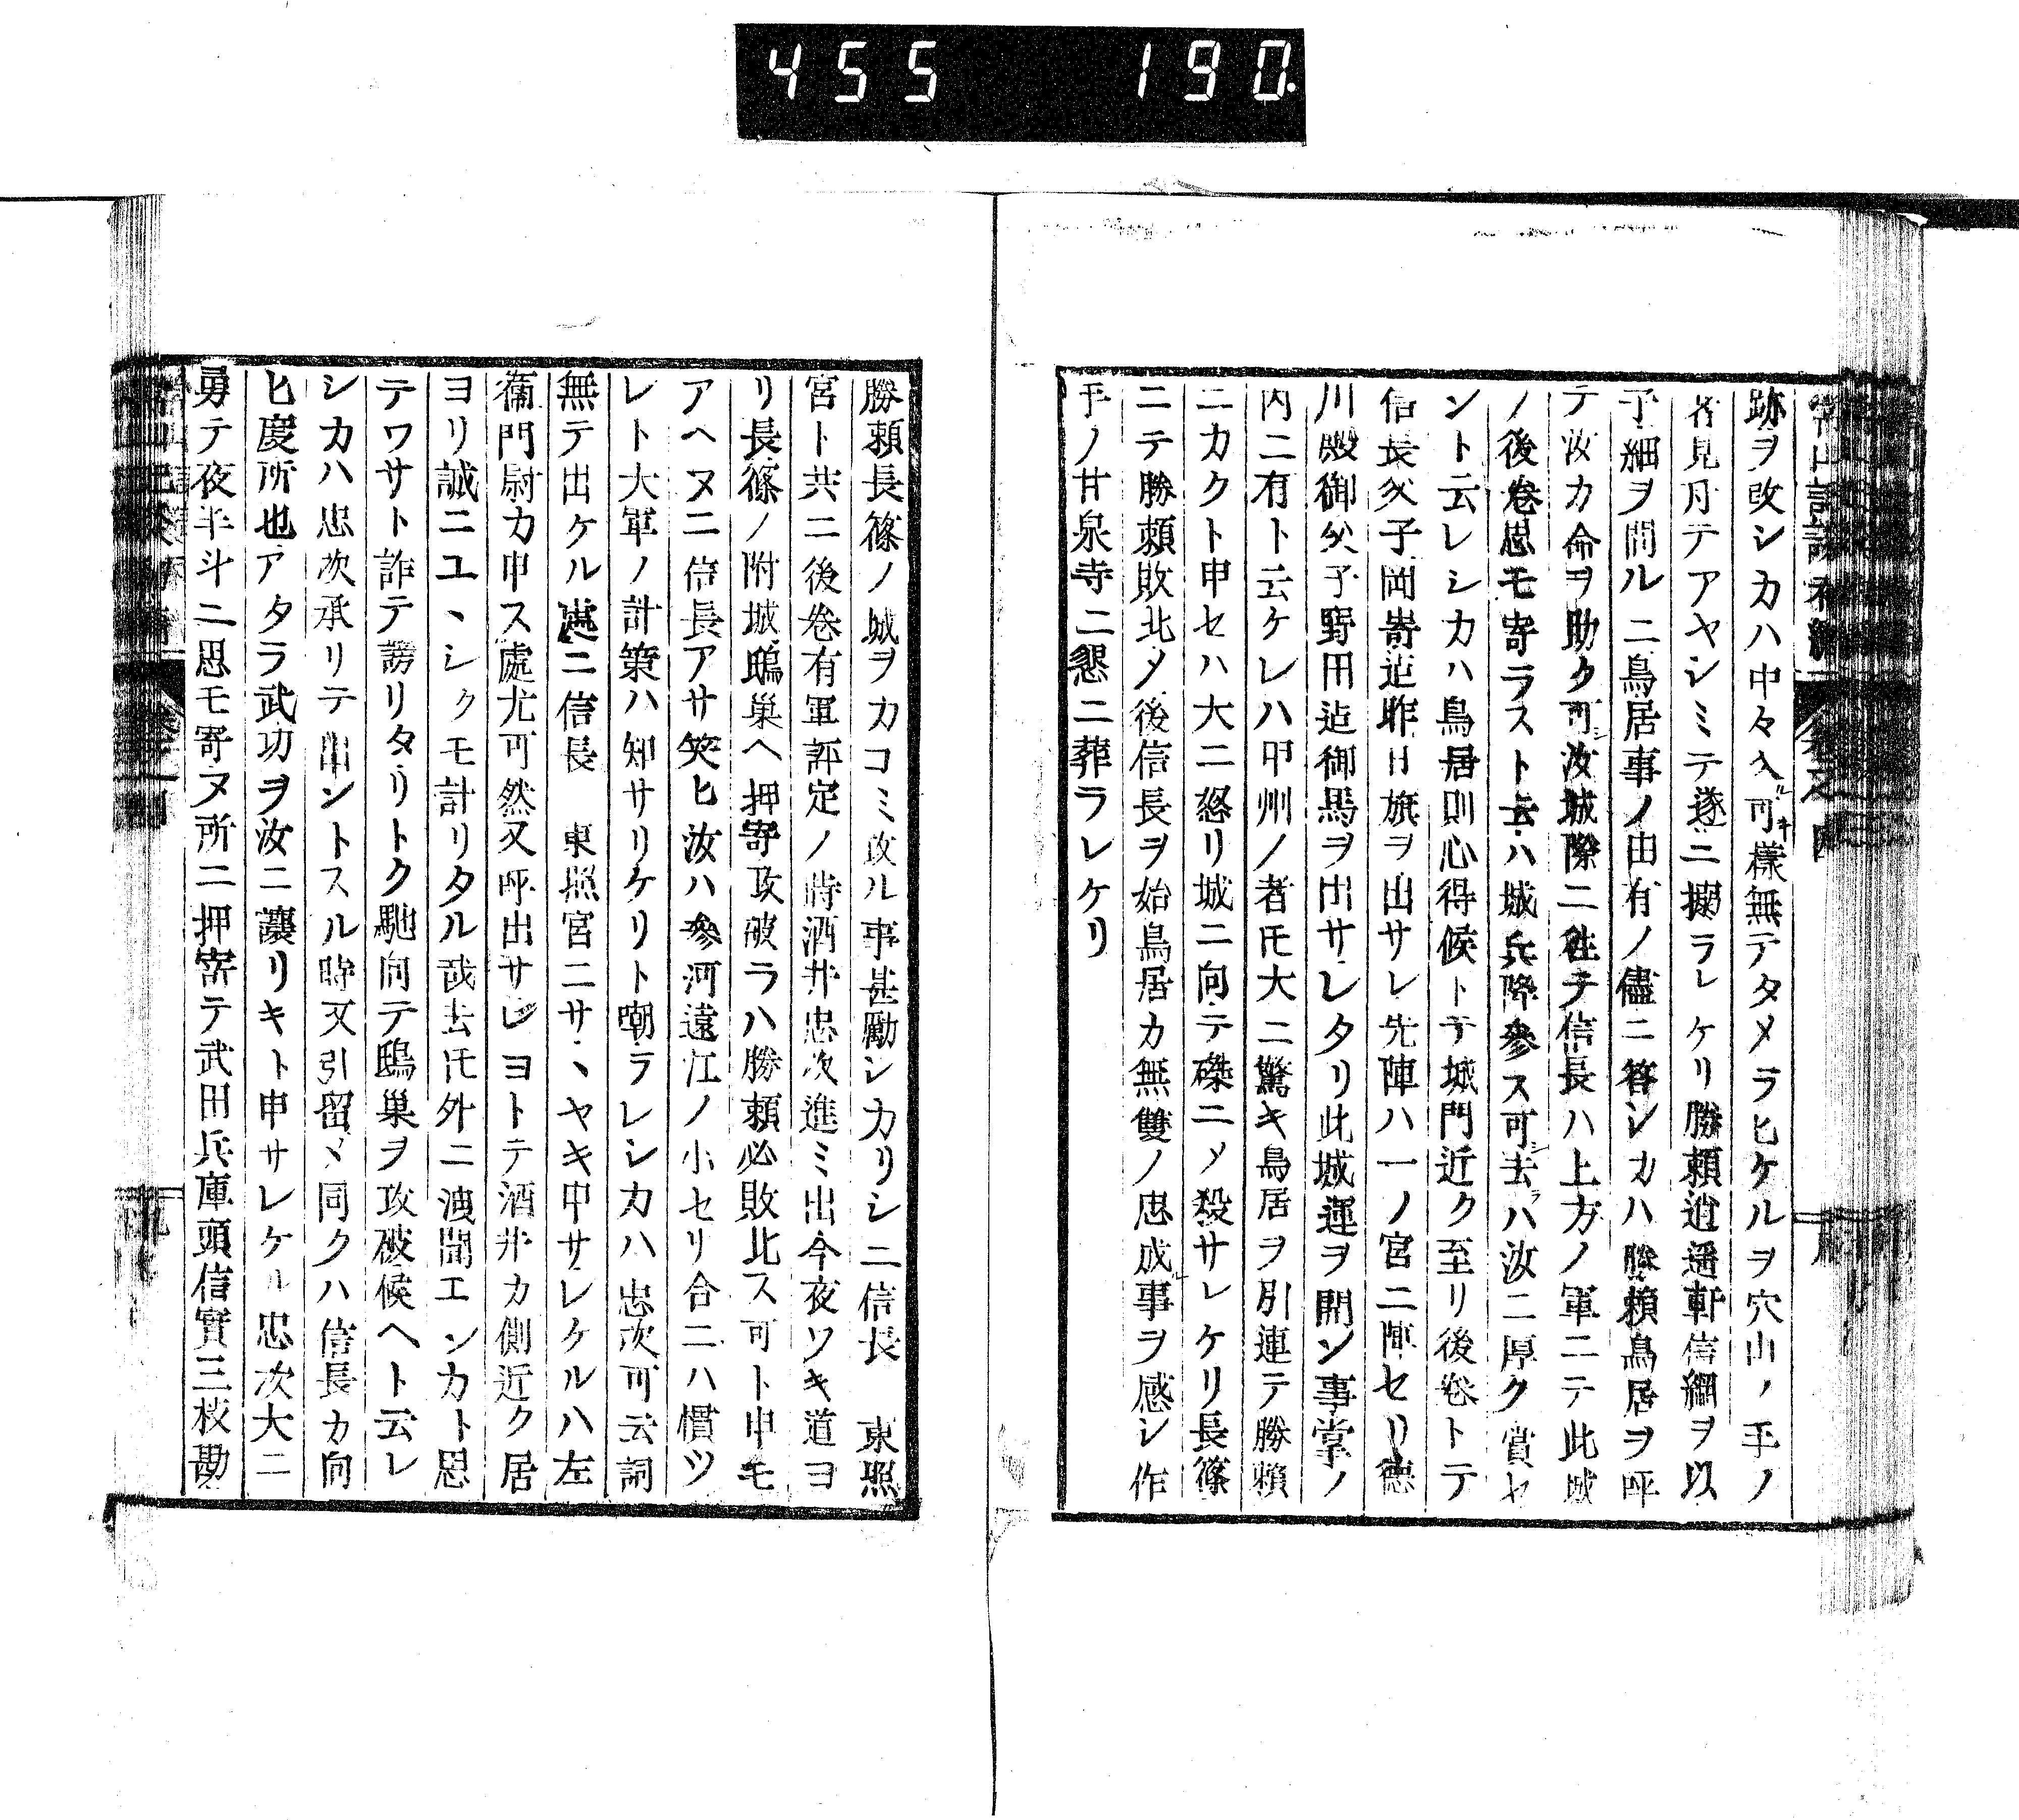 455 190.
跡ヲ改シカハ中々入ル可キ樣無テタメラヒケルヲ穴山ノ手ノ
者見付テアヤシミテ遂ニ搦ラレケリ勝頼逍遥軒信綱ヲ以
子細ヲ問ルニ鳥居事ノ由有ノ儘ニ答シカハ勝頼鳥居ヲ呼
テ汝カ命ヲ助ク可シ汝城際ニ往テ信長ハ上方ノ軍ニテ此城
ノ後巻思モ寄ラスト云ハ城兵降参ス可シ去ラハ汝ニ厚ク賞セ
ント云レシカハ鳥居則心得候トテ城門近ク至リ後巻トテ
信長父子岡崎迠昨日旗ヲ出サレ先陣ハ一ノ宮ニ陣セリ徳
川殿御父子野田迠御馬ヲ出サレタリ此城運ヲ開ン事掌ノ
内ニ有ト云ケレハ甲州ノ者𪜈大ニ驚キ鳥居ヲ引連テ勝頼
ニカクト申セハ大ニ怒リ城ニ向テ磔ニメ殺サレケリ長篠
ニテ勝頼敗北メ後信長ヲ始鳥居カ無雙ノ忠成ル事ヲ感シ作
手ノ甘泉寺ニ懇ニ葬ラレケリ
勝頼長篠ノ城ヲカコミ攻ル事甚勵シカリシニ信長　東照
宮ト共ニ後巻有軍評定ノ時酒井忠次進ミ出今夜ソキ道ヨ
リ長篠ノ附城鴟巣ヘ押寄攻破ラハ勝頼必敗北ス可ト申モ
アヘヌニ信長アサ笑ヒ汝ハ參河遠江ノ小セリ合ニハ慣ツ
レト大軍ノ計策ハ知サリケリト嘲ラレシカハ忠次可云詞
無テ出ケル迹ニ信長　東照宮ニサヽヤキ申サレケルハ左
衞門尉カ申ス處尤可然又呼出サレヨトテ酒井カ側近ク居
ヨリ誠ニユヽシクモ計リタル哉去𪜈外ニ洩聞エンカト思
テワサト詐テ謗リタリトク馳向テ鴟巣ヲ攻破候ヘト云レ
シカハ忠次承リテ出ントスル時又引留メ同クハ信長カ向
ヒ度所也アタラ武功ヲ汝ニ讓リキト申サレケル忠次大ニ
勇テ夜半斗ニ思モ寄ヌ所ニ押寄テ武田兵庫頭信實三枝勘